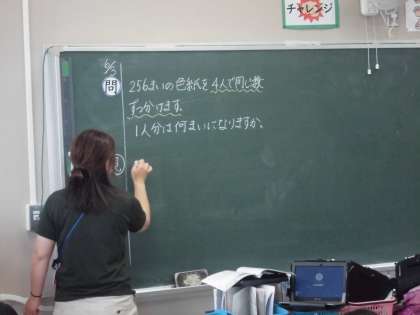 チャレンジ
6/5
問 256まいの色紙を4人で同じ数
ずつ分けます。
1人分は何まいになりますか。